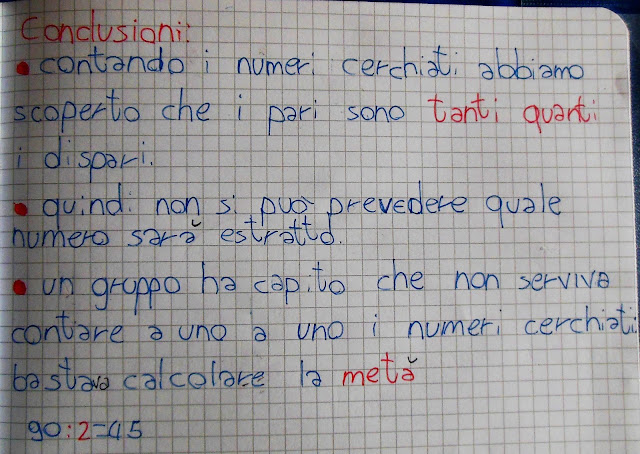 Conclusioni:
• contando i numeri cerchiati abbiamo
scoperto che i pari sono tanti quanti
i dispari.
• quindi non si può prevedere quale
numero sarà estratto.
• un gruppo ha capito che non serviva
contare a uno a uno i numeri cerchiati:
bastava calcolare la metà
90:2=45